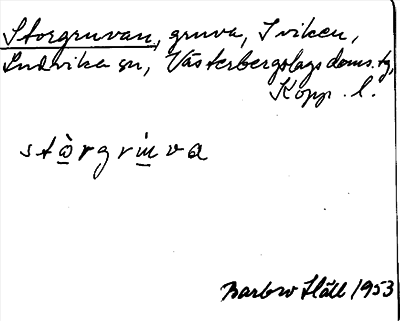 Storgruvan, gruva, I viken,
Ludvika sn, Västerbergslags doms. tg,
Kopp. l.
stòrgrùva
1953